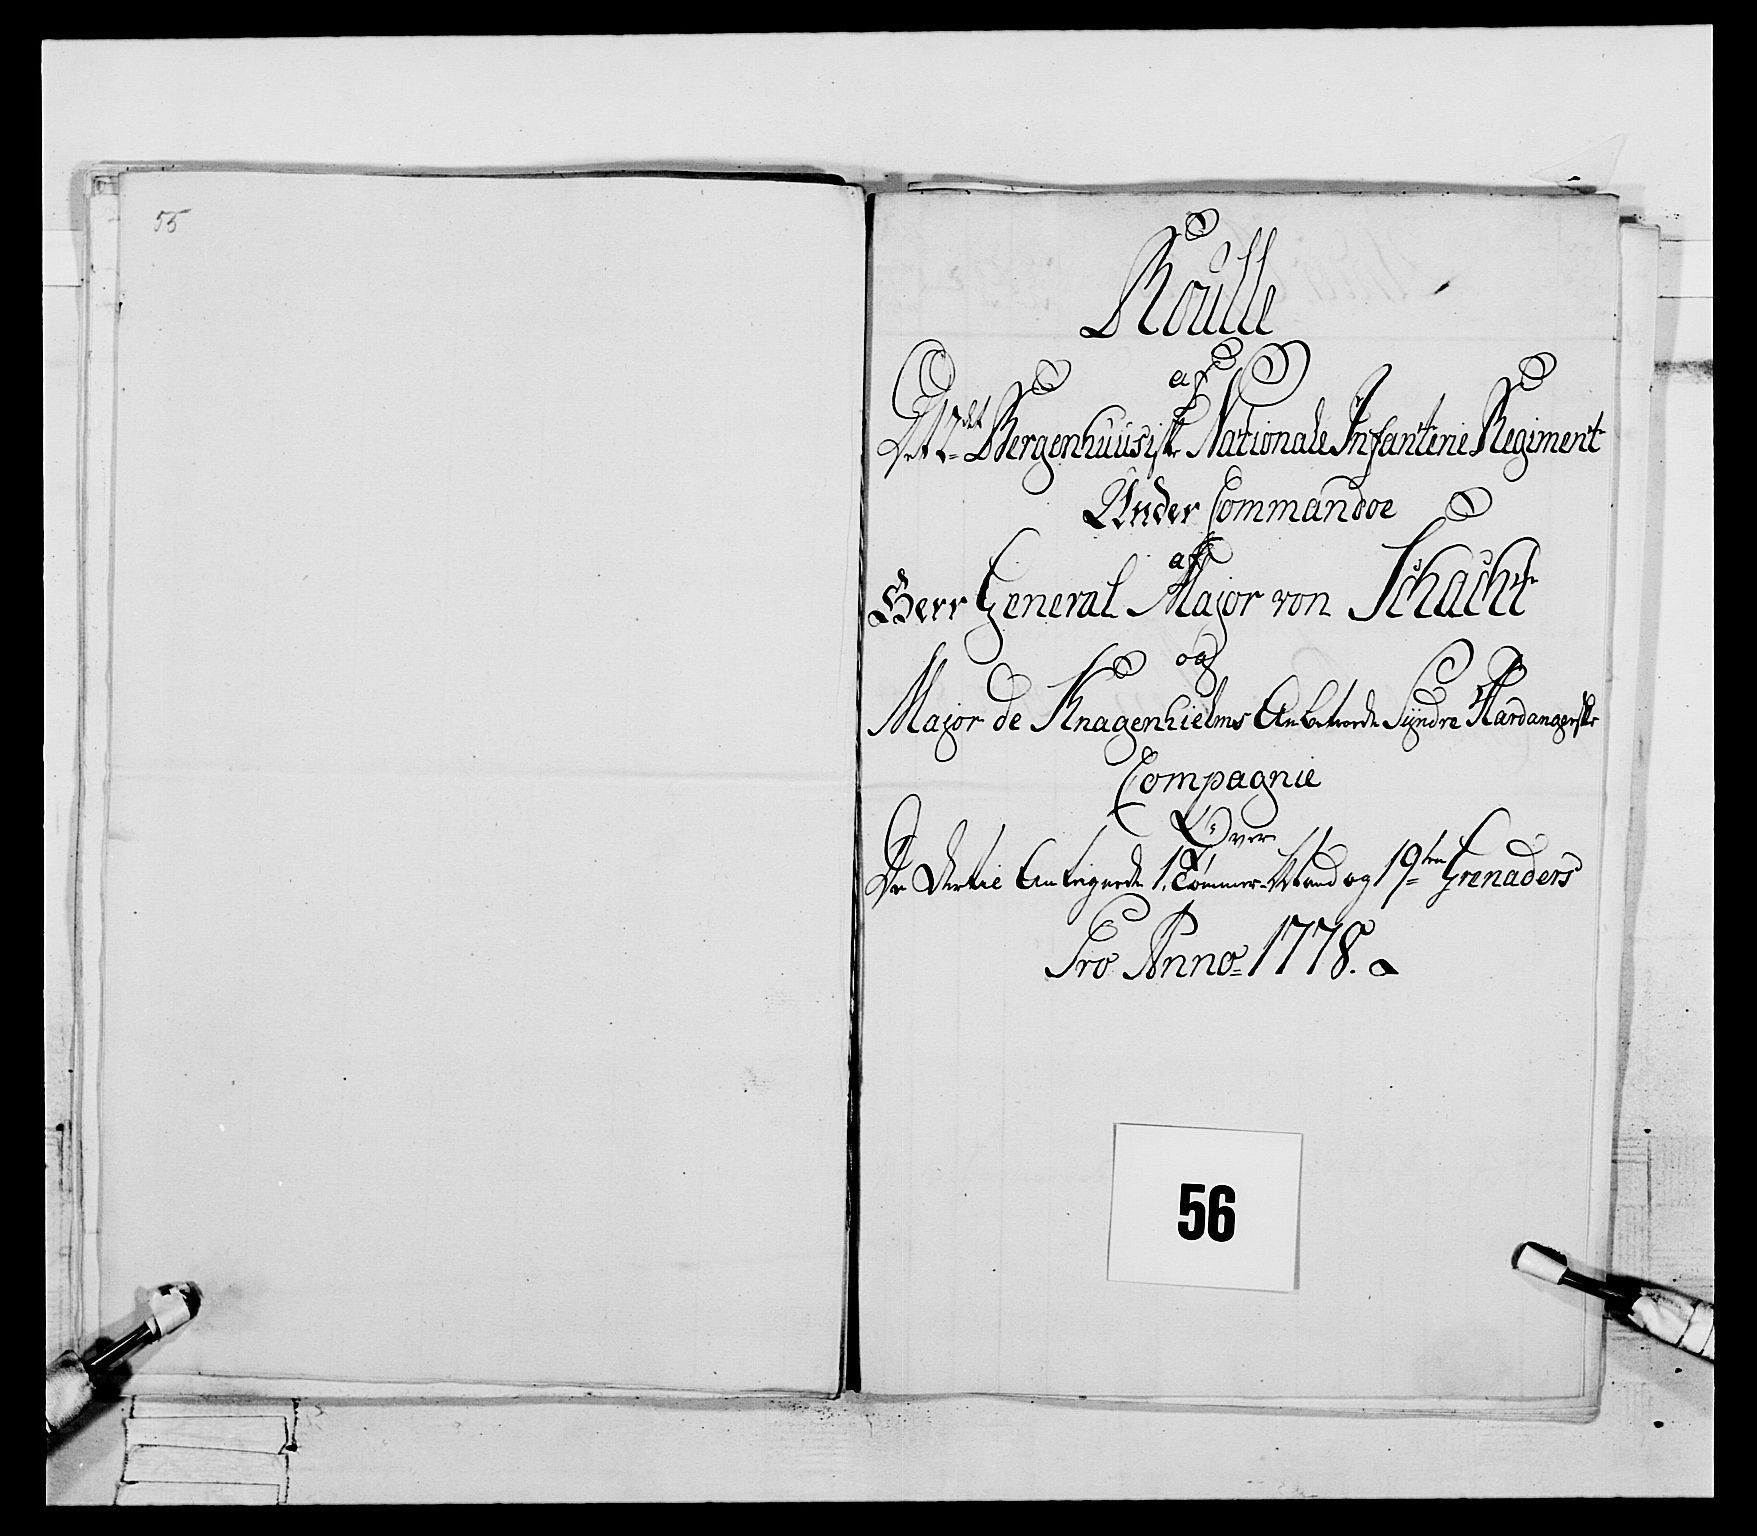 55
Roulle
af
Det 2det Bergenhuusiske Nationale Infanterie Regiment
Under Commandoe
af
Herr General Major von Schacht
og
Major de Knagenhielms Anbetroede Syndre Hardangerske
Compagnie
Over
De Dertil Anteignede 1. Tømmer-Mand og 19ten Grenaders
Pro Anno 1778.
56